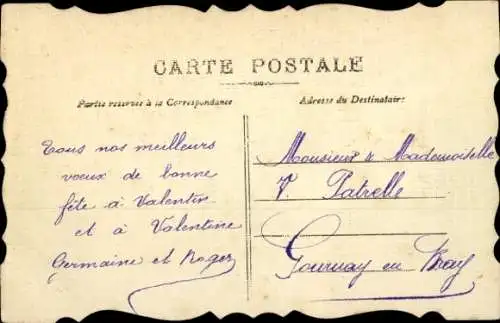 CARTE POSTALE
Partie reservée à la Correspondance
Adresse du Destinataire
Tous nos meilleurs
voeux de bonne
fête à Valentin
et à Valentine
Germaine et Roger
Monsieur & Mademoiselle
V. Patrelle
Gournay en Bray